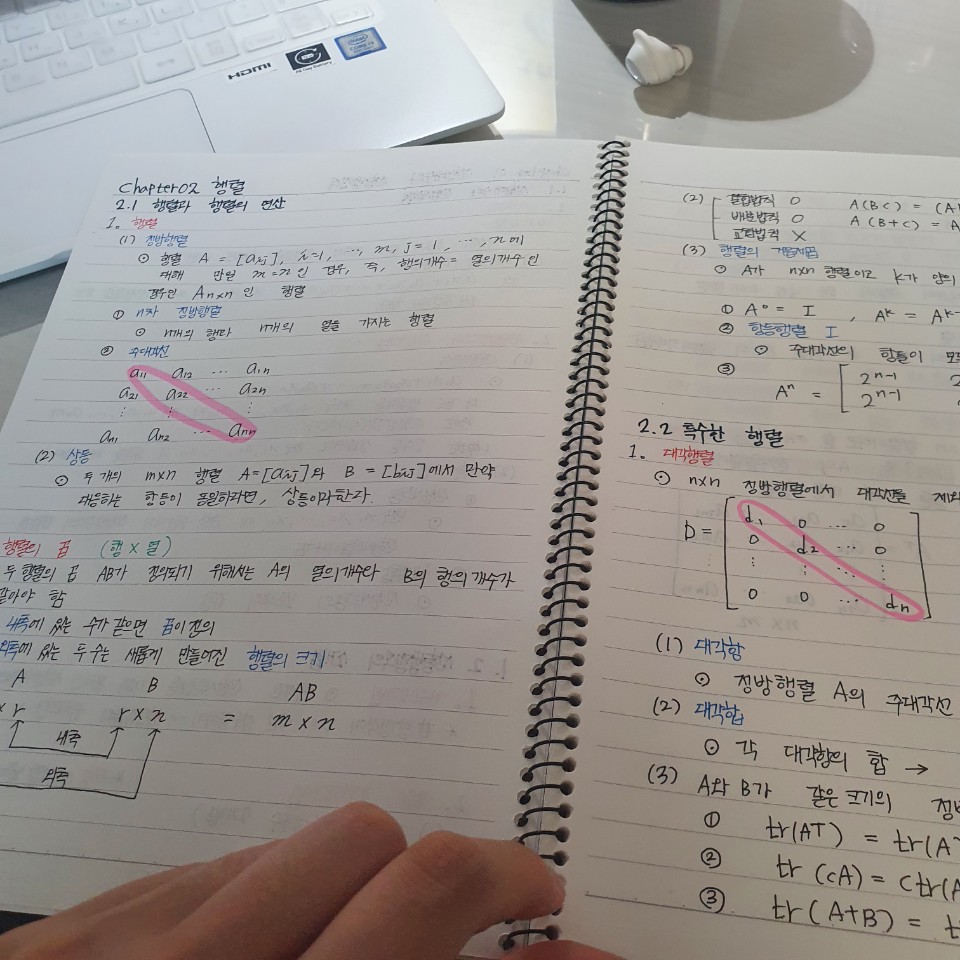 HDMI
intel
CORE i7
Chapter 02 행렬
2.1 행렬과 행렬의 연산
1. 행렬
(1) 정방행렬
⊙ 행렬 A = [aij], i=1, …, m, j = 1, …, n에
대해 만일 m=n인 경우, 즉, 행의개수 = 열의개수인
경우인 An×n 인 행렬
① n차 정방행렬
⊙ n개의 행과 n개의 열을 가지는 행렬
② 주대각선
a11 a12 … a1n
a21 a22 … a2n
⋮ ⋮ ⋮
an1 an2 … ann
(2) 상등
⊙ 두 개의 m×n 행렬 A=[aij]와 B = [bij]에서 만약
대응하는 항등이 동일하다면, 상등이라한다.
행렬의 곱 (행×열)
두 행렬의 곱 AB가 정의되기 위해서는 A의 열의개수와 B의 행의개수가
같아야 함
내측에 있는 수가 같으면 곱이 정의
외측에 있는 두 수는 새롭게 만들어진 행렬의 크기
A B AB
× r r × n = m × n
내측
외측
(2) 결합법칙 O A(BC) = (A
배분법칙 O A(B+C) = A
교환법칙 X
(3) 행렬의 거듭제곱
⊙ A가 n×n 행렬이고 k가 양의
① A⁰ = I , Aᵏ = Aᵏ⁻
② 항등행렬 I
⊙ 주대각선의 항들이 모
③ Aⁿ = [ 2ⁿ⁻¹ 2
2ⁿ⁻¹
2.2 특수한 행렬
1. 대각행렬
⊙ n×n 정방행렬에서 대각선을 제외
D = [ d1 0 … 0
0 d2 … 0
⋮ ⋮ ⋮
0 0 … dn ]
(1) 대각항
⊙ 정방행렬 A의 주대각선
(2) 대각합
⊙ 각 대각항의 합 →
(3) A와 B가 같은 크기의 정방
① tr(AT) = tr(A
② tr(cA) = ctr(A
③ tr(A+B) = t